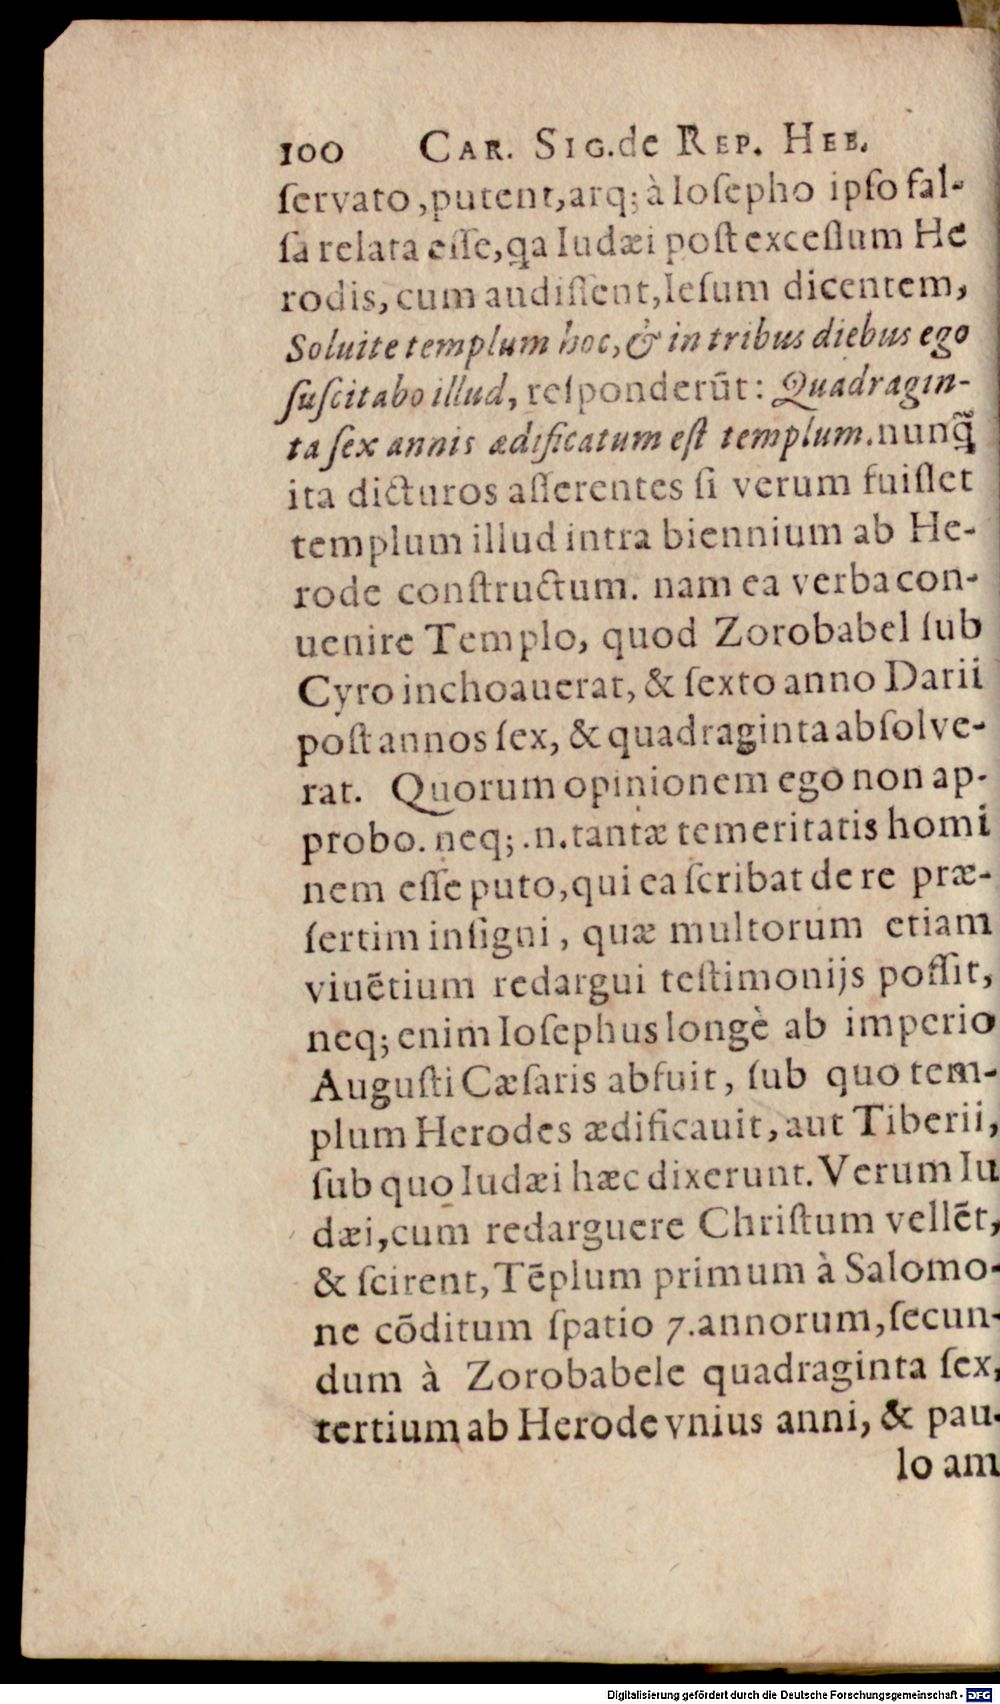 100 CAR. SIG. de REP. HEB.
ſervato, putent, atq; à Ioſepho ipſo fal-
ſa relata eſſe, qa Iudæi poſt exceſſum He
rodis, cum audiſſent, Ieſum dicentem,
Soluite templum hoc, & in tribus diebus ego
ſuſcitabo illud, reſponderūt: Quadragin-
ta ſex annis ædificatum eſt templum. nunq̃
ita dicturos aſſerentes ſi verum fuiſſet
templum illud intra biennium ab He-
rode conſtructum. nam ea verba con-
uenire Templo, quod Zorobabel ſub
Cyro inchoauerat, & ſexto anno Darii
poſt annos ſex, & quadraginta abſolve-
rat. Quorum opinionem ego non ap-
probo. neq; .n. tantæ temeritatis homi
nem eſſe puto, qui ea ſcribat de re præ-
ſertim inſigni, quæ multorum etiam
viuētium redargui teſtimonijs poſſit,
neq; enim Ioſephus longè ab imperio
Auguſti Cæſaris abfuit, ſub quo tem-
plum Herodes ædificauit, aut Tiberii,
ſub quo Iudæi hæc dixerunt. Verum Iu
dæi, cum redarguere Chriſtum vellēt,
& ſcirent, Tēplum primum à Salomo-
ne cōditum ſpatio 7. annorum, ſecun-
dum à Zorobabele quadraginta ſex,
tertium ab Herode vnius anni, & pau-
lo am
Digitalisierung gefördert durch die Deutsche Forschungsgemeinschaft - DFG